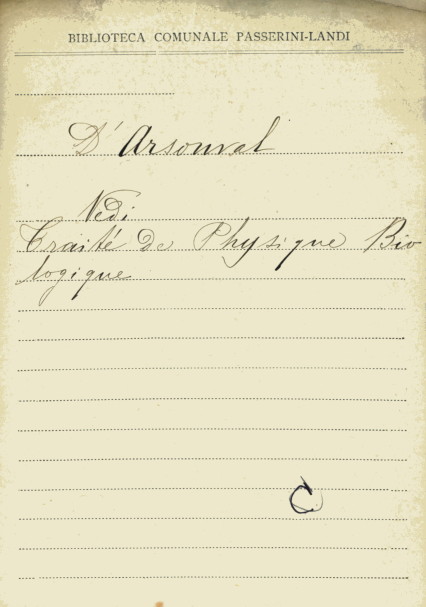 BIBLIOTECA COMUNALE PASSERINI-LANDI
D'Arsonval
Vedi
Traité de Physique Bio
logique
C